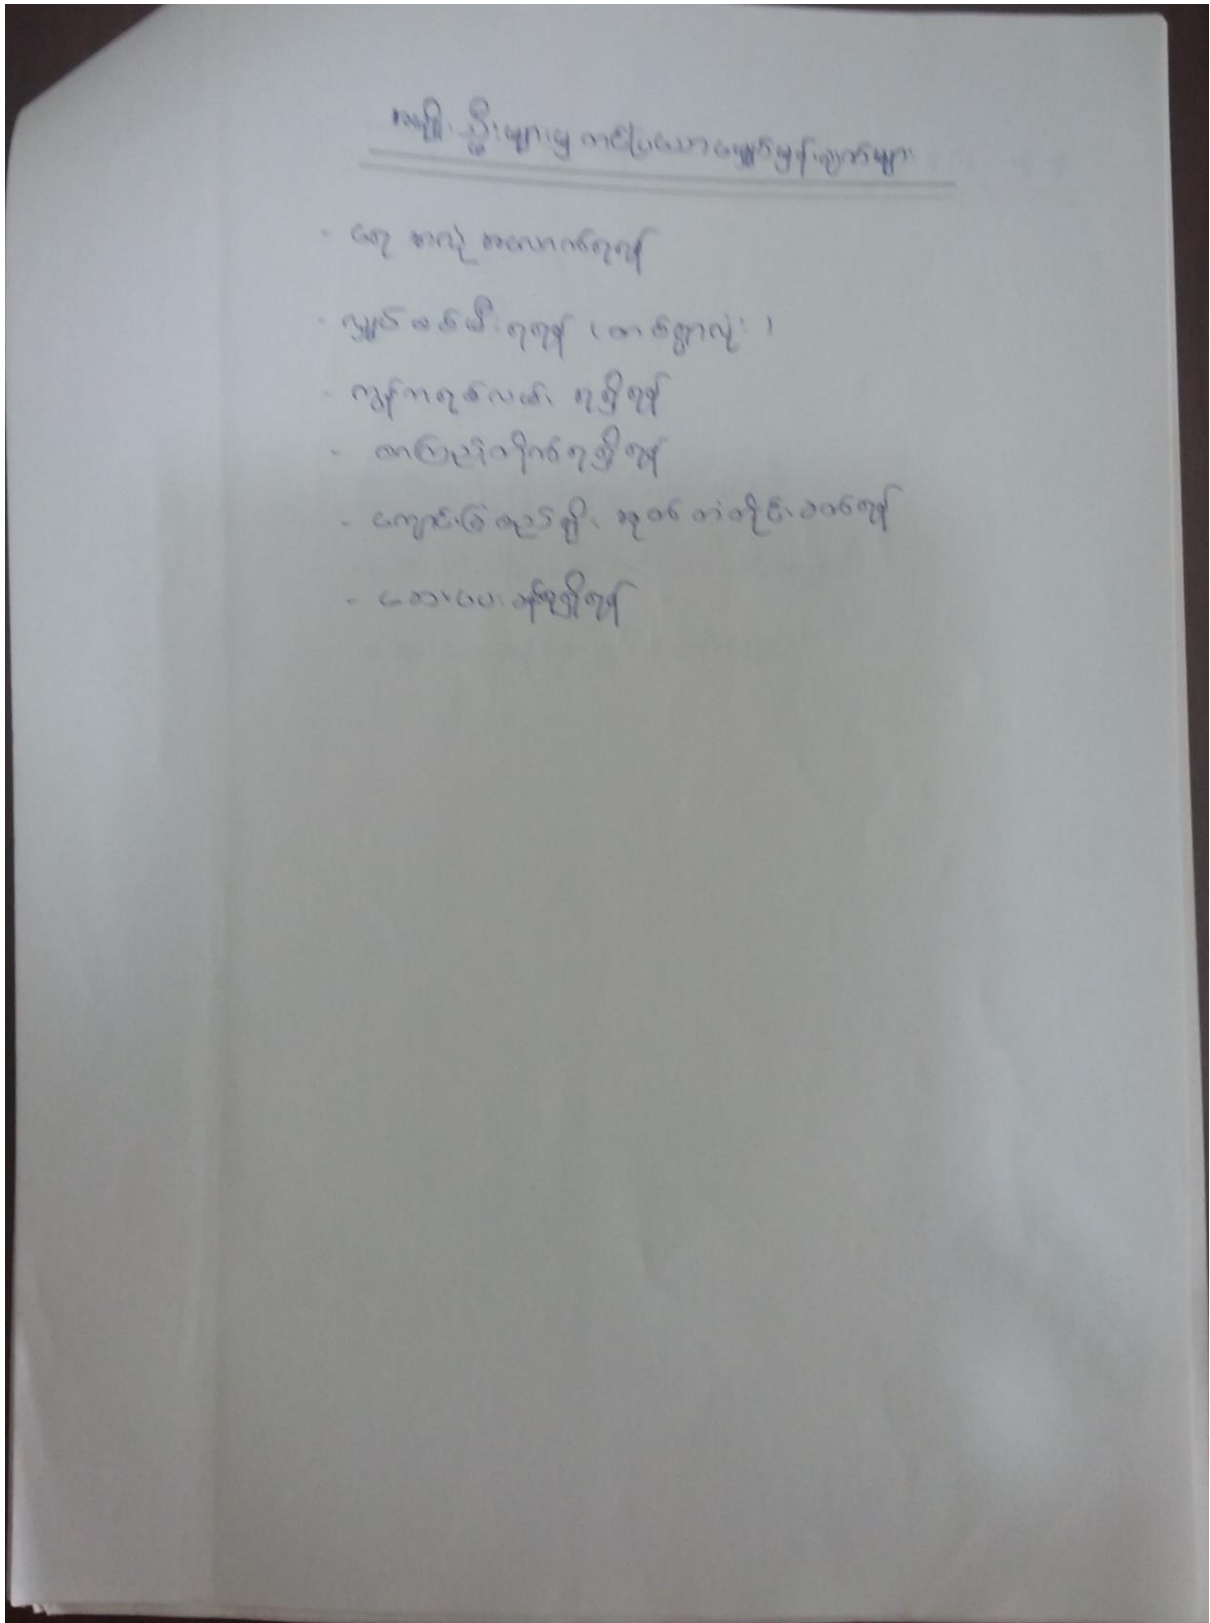 အမျိုးသမီးများမှ တင်ပြသောမျှော်မှန်းချက်များ
- ရေ အလုံအလောက်ရရန်
- လျှပ်စစ်မီးရရန် (တစ်ရွာလုံး)
- ကွန်ကရစ်လမ်း ရရှိရန်
- စာကြည့်တိုက်ရရှိရန်
- ကျောင်းခြံစည်းရိုး အုတ်တံတိုင်းခတ်ရန်
- ဆေးပေးခန်းရရှိရန်